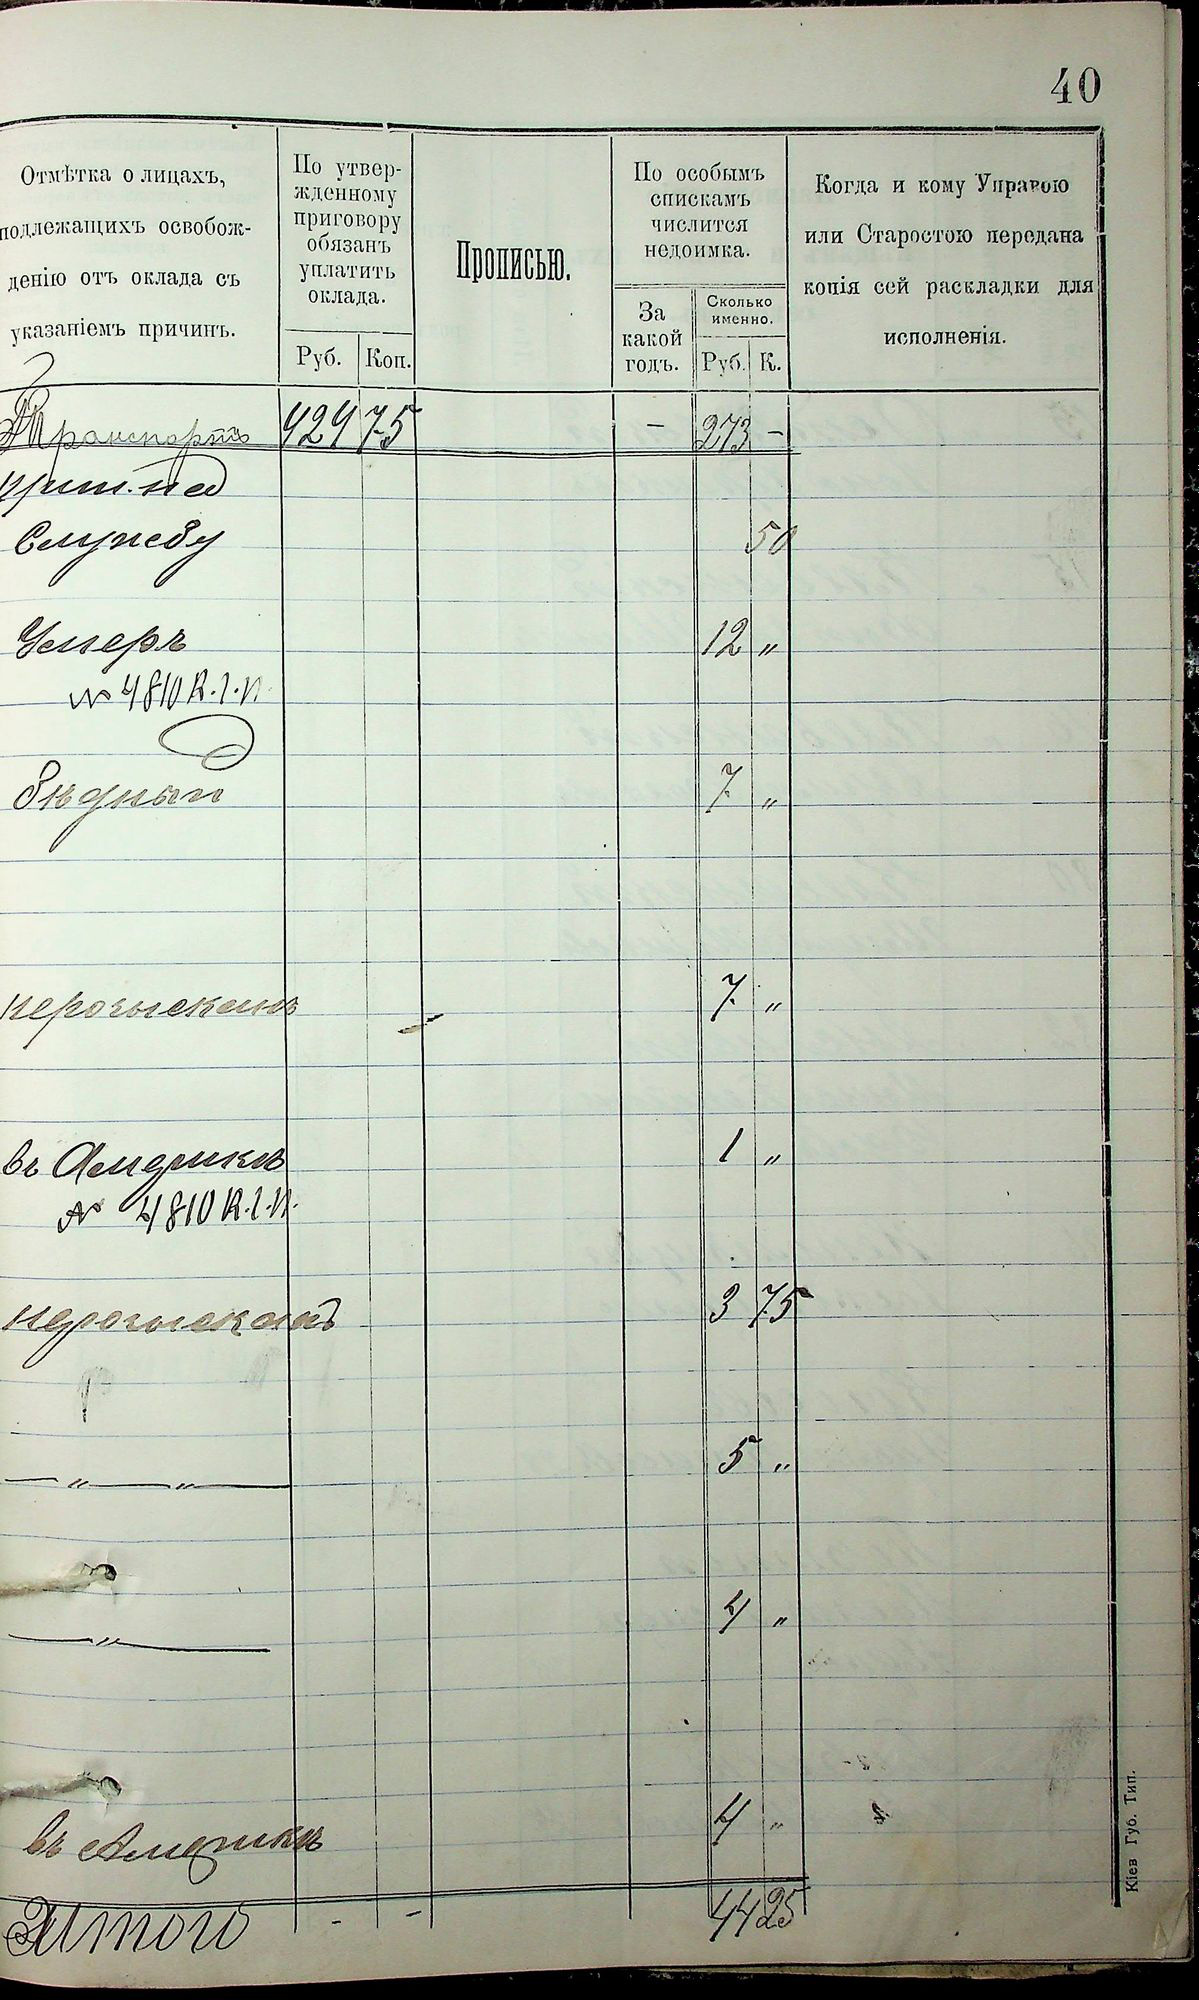 40
Отмѣтка о лицахъ,
подлежащихъ освобож-
денію отъ оклада съ
указаніемъ причинъ.
По утвер-
жденному
приговору
обязанъ
уплатить
оклада.
Руб. Коп.
Прописью.
По особымъ
спискамъ
числится
недоимка.
За
какой
годъ.
Сколько
именно.
Руб. К.
Когда и кому Управою
или Старостою передана
копія сей раскладки для
исполненія.
Транспортъ 424 75 - 273 -
прин. на
Службу 50
Умеръ 12 "
№ 4810 К.I.П.
бѣдный 7 "
нерозысканъ 7 "
въ Америкѣ 1 "
№ 4810 К.I.П.
нерозысканъ 3 75
— " — " — 5 "
— " — 4 "
въ Америкѣ 4 "
Итого - - 44 25
Кіев Губ. Тип.